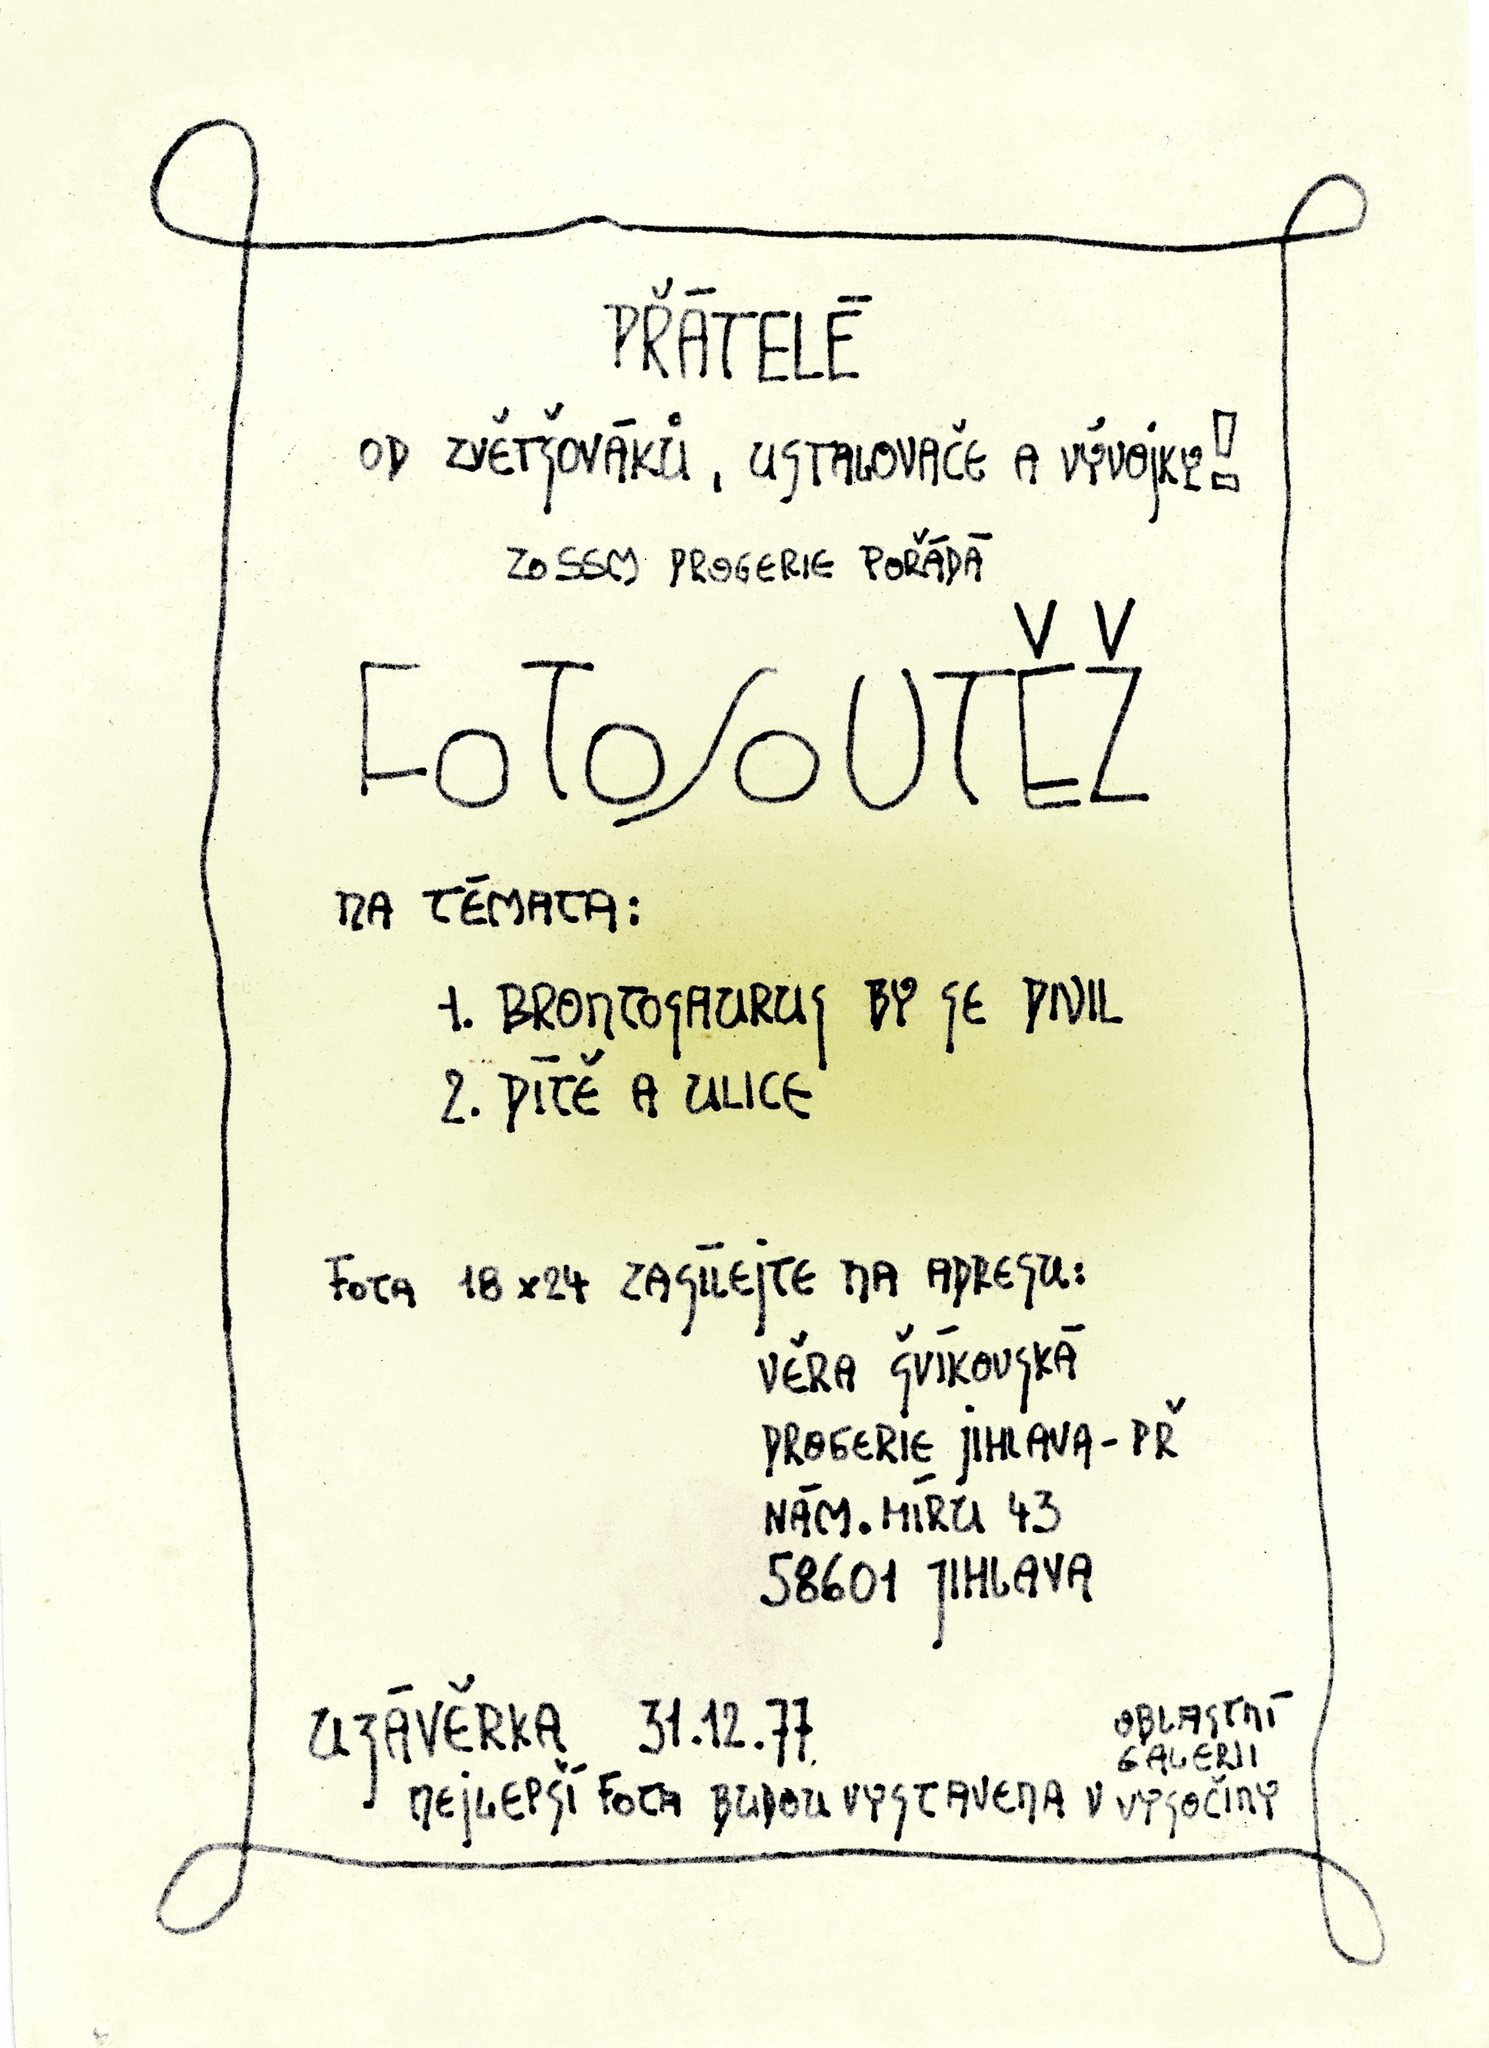 PŘÁTELÉ
OD ZVĚTŠOVÁKŮ, USTALOVAČE A VÝVOJKY!
ZO SSM DROGERIE POŘÁDÁ
FOTOSOUTĚŽ
NA TÉMATA:
1. BRONTOSAURUS BY SE DIVIL
2. DÍTĚ A ULICE
FOTA 18x24 ZASÍLEJTE NA ADRESU:
VĚRA ŠVÍKOVSKÁ
DROGERIE JIHLAVA-PŘ
NÁM. MÍRU 43
58601 JIHLAVA
UZÁVĚRKA 31.12.77
NEJLEPŠÍ FOTA BUDOU VYSTAVENA V
OBLASTNÍ
GALERII
VYSOČINY